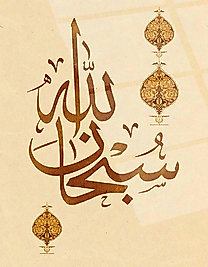 سُبْحَانَ ٱللَّٰه